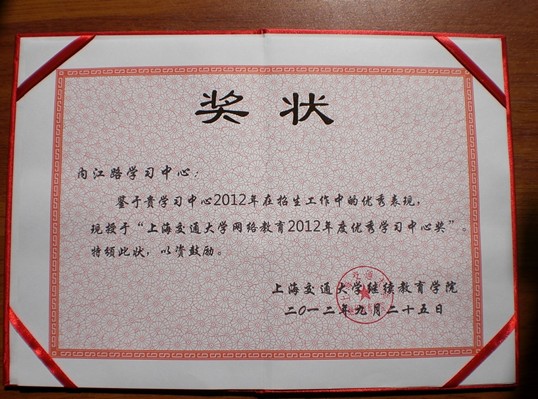 奖状
内江路学习中心：
鉴于贵学习中心2012年在招生工作中的优秀表现，
现授于“上海交通大学网络教育2012年度优秀学习中心奖”。
特颁此状，以资鼓励。
上海交通大学继续教育学院
二〇一二年九月二十五日